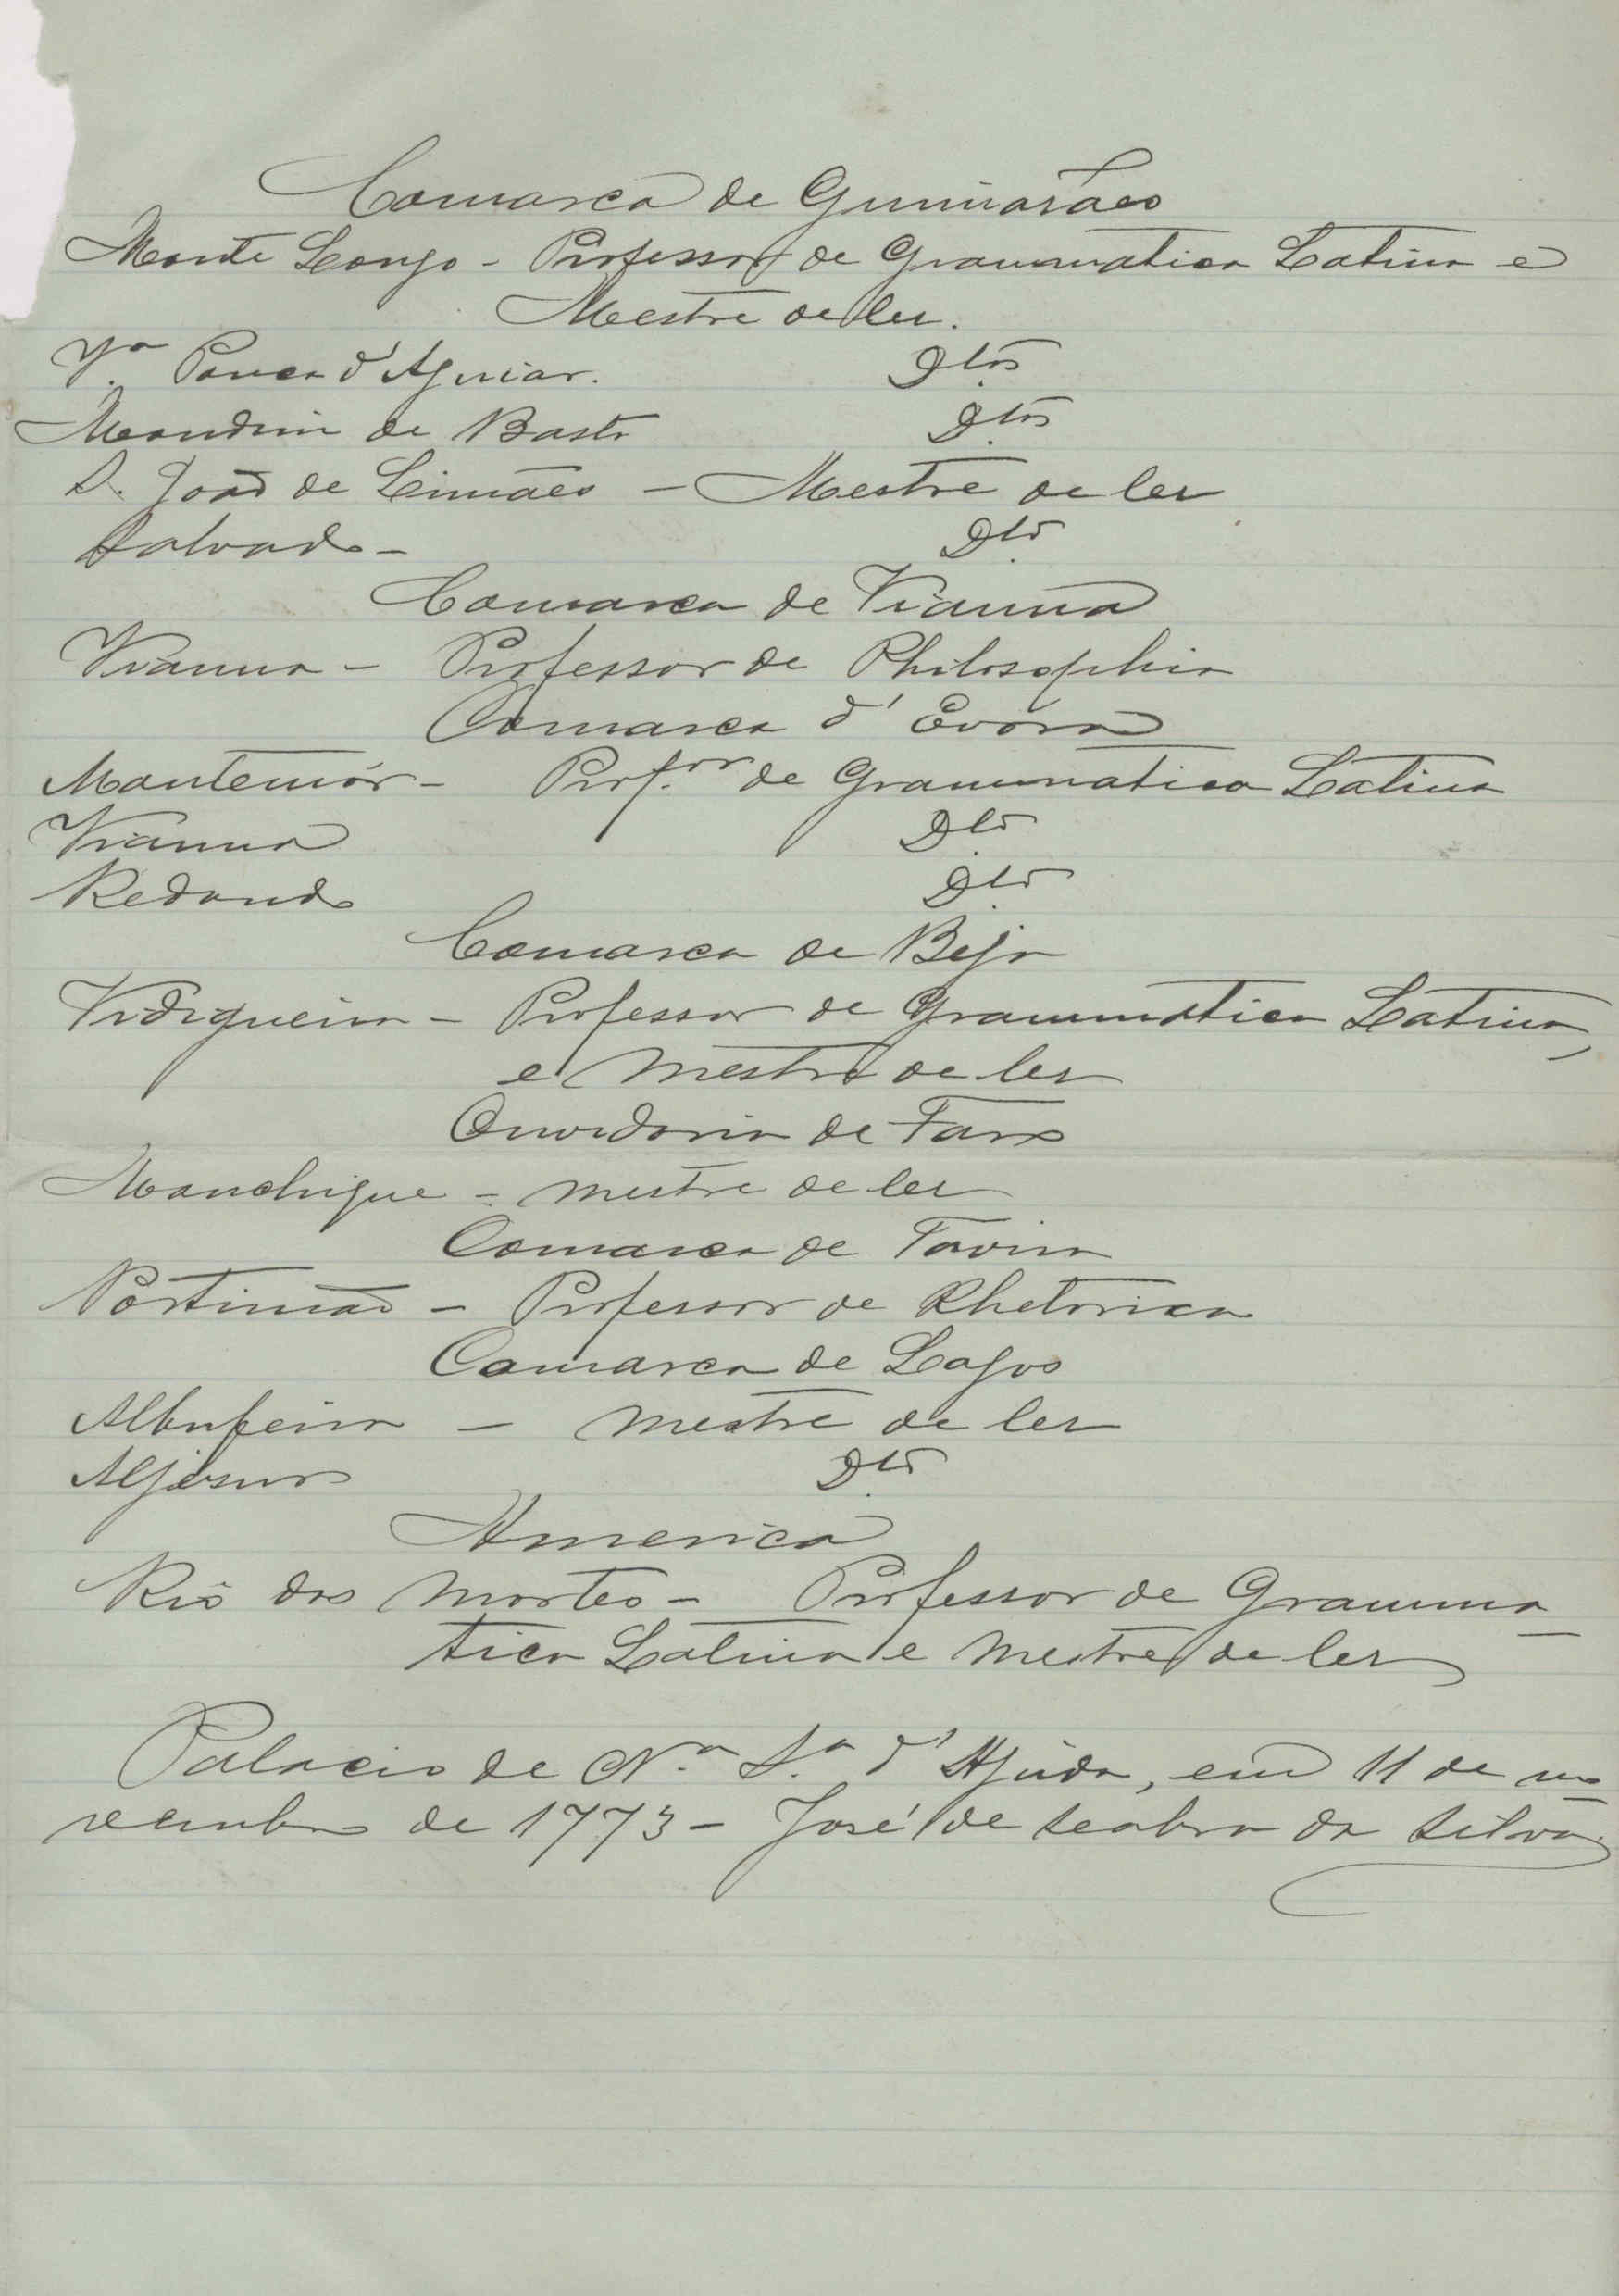 Comarca de Guimarães
Monte Longo - Professor de Grammatica Latina e
Mestre de ler.
Vª Pouca d'Aguiar. Dtos
Mondim de Basto Dtos
S. João de Limães - Mestre de ler
Salvado - Dto
Comarca de Vianna
Vianna - Professor de Philosophia
Comarca d'Evora
Montemór - Prof.or de Grammatica Latina
Vianna Dto
Redondo Dto
Comarca de Beja
Vidigueira - Professor de Grammatica Latina,
e mestre de ler
Ouvidoria de Faro
Monchique - mestre de ler
Comarca de Tavira
Portimão - Professor de Rhetorica
Comarca de Lagos
Albufeira - mestre de ler
Aljesur Dto
America
Rio das Mortes - Professor de Gramma-
tica Latina e mestre de ler
Palacio de N.ª S.ª d'Ajuda, em 11 de no-
vembro de 1773 - José de Seabra da Silva.